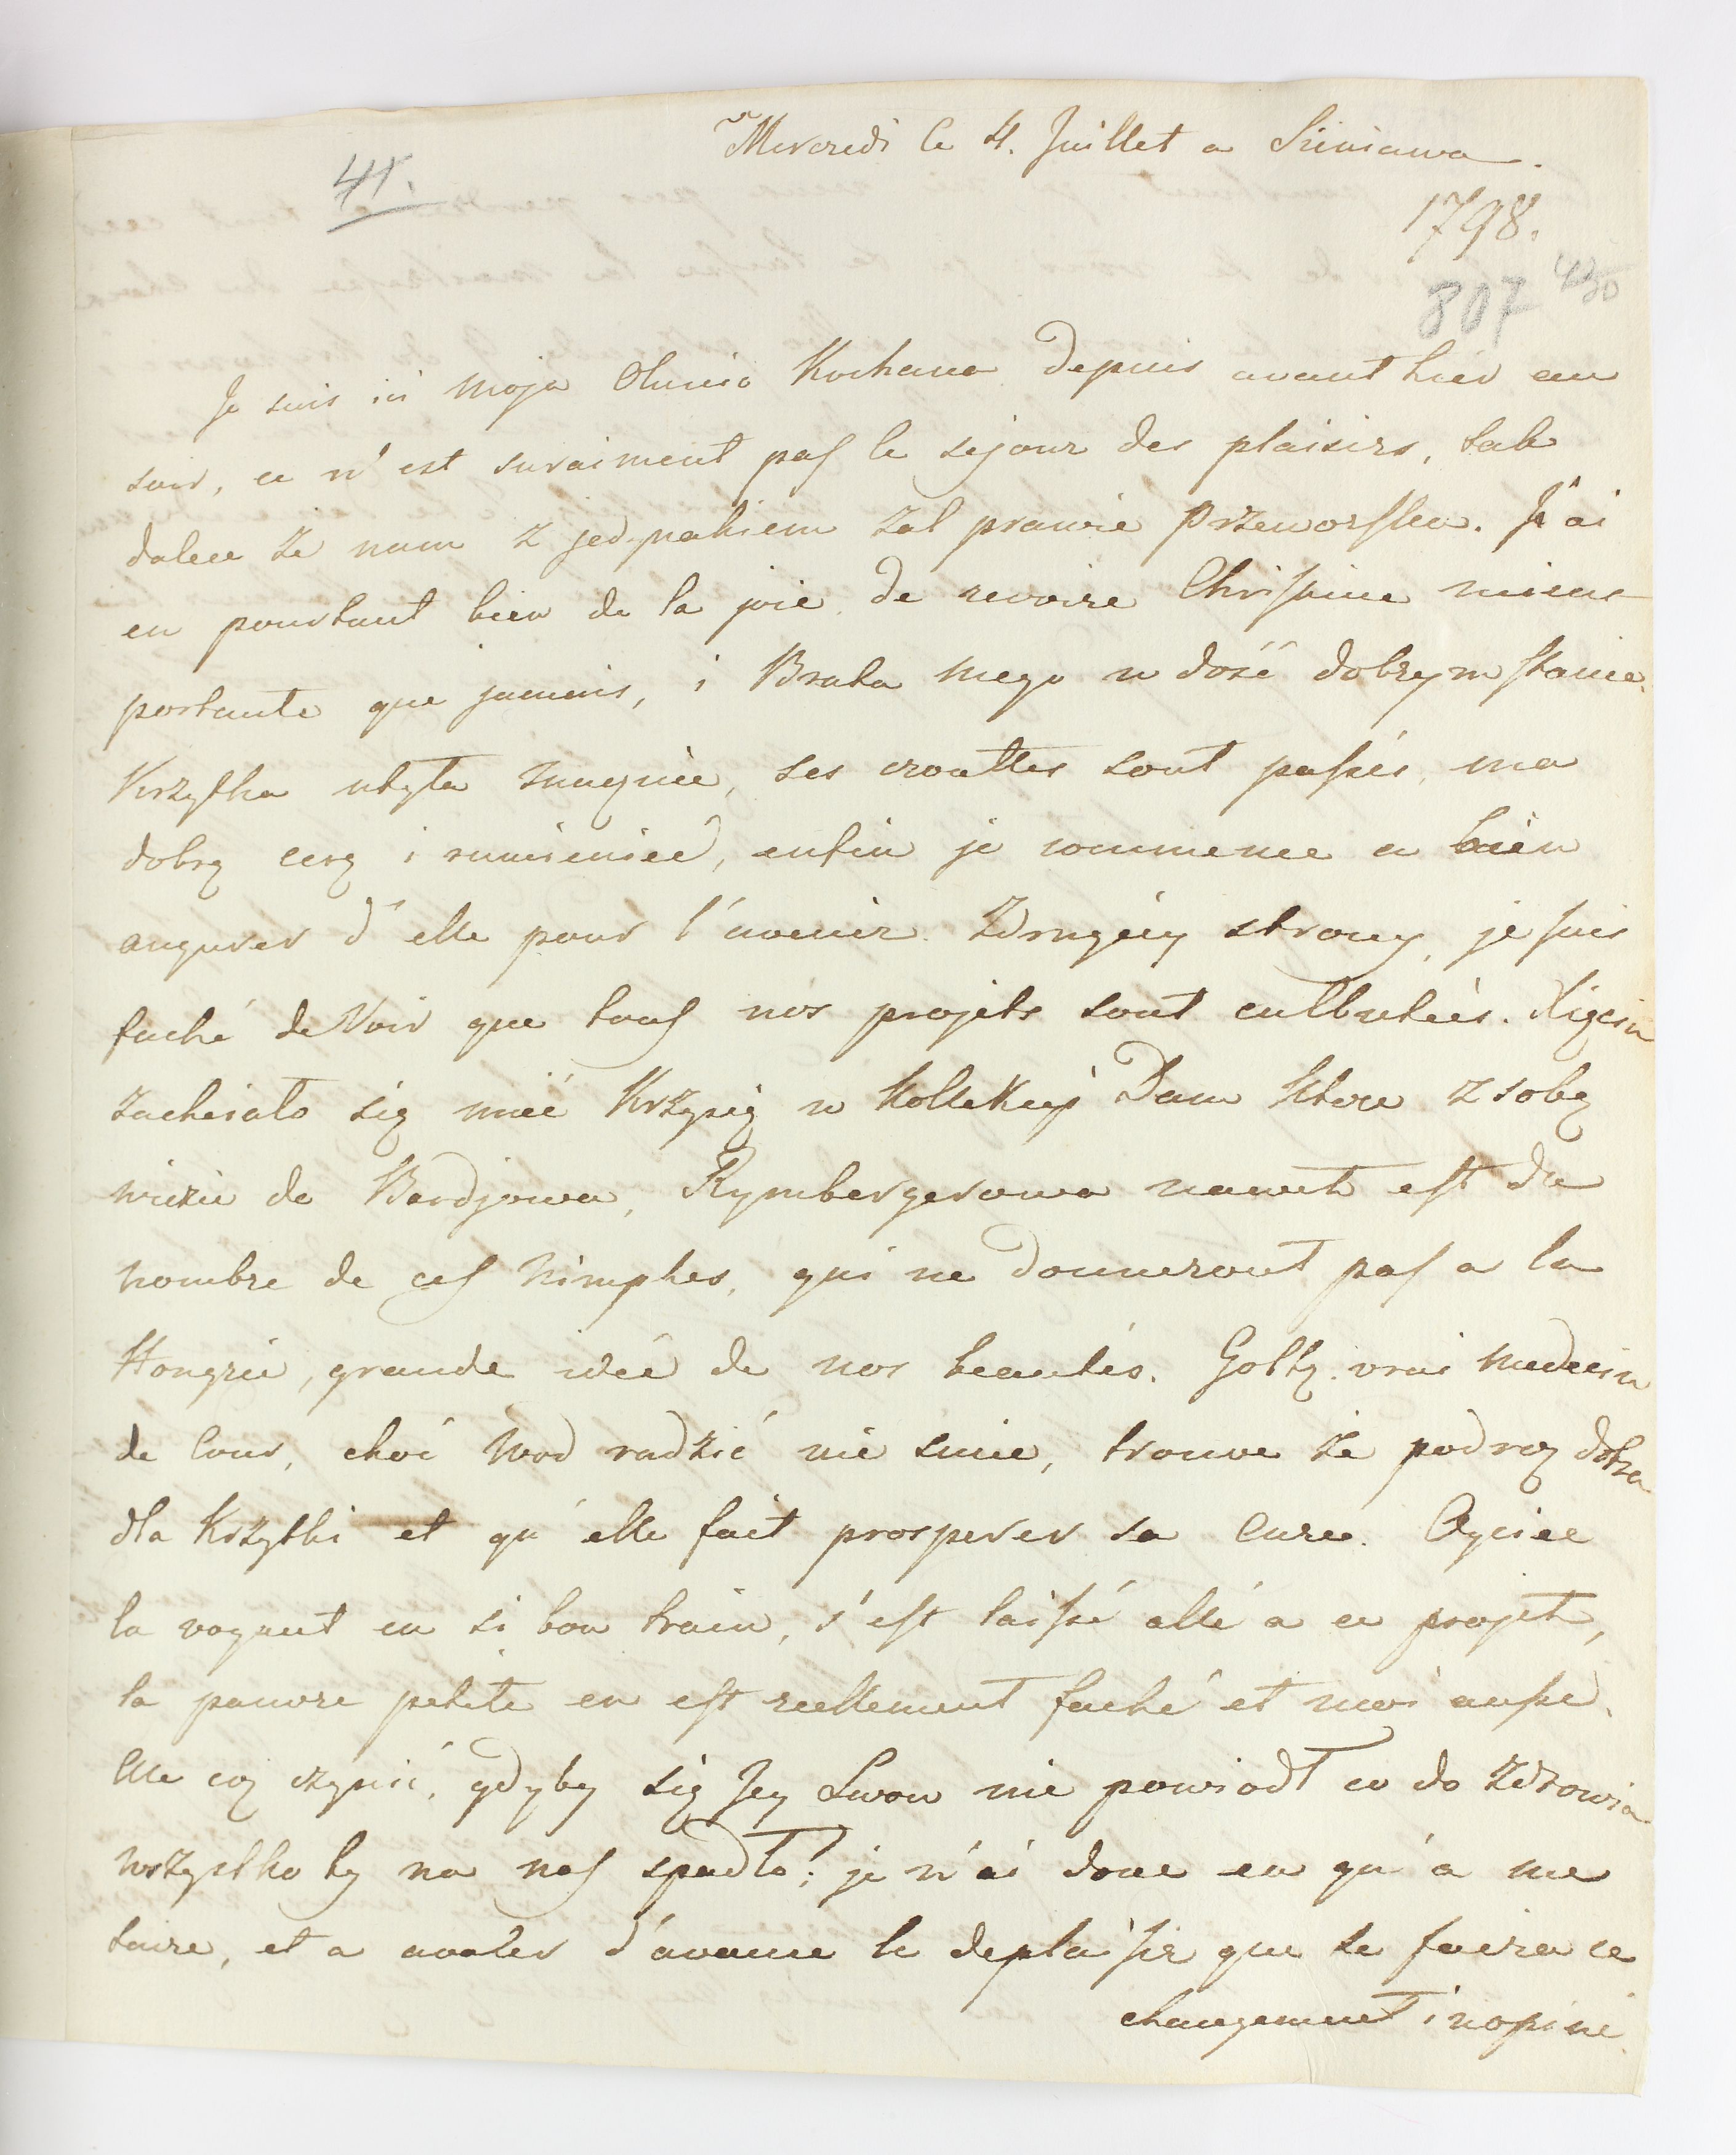 Mercredi le 4. Juillet a Siniawa.
41.
1798.
807
Je suis ici moja Olunio Kochana depuis avant hier au
soir, ce n'est survaiment pas le sejour des plaisirs, tak
dalece że nam z jednakiem żal prawie Przeworska. J'ai
eu pourtant bien de la joie de revoire Christine mieux
portante que jamais, i Brata mego w dość dobrym stanie.
Krzyska utyła znacznie, ses crouttes sont passés, ma
dobrą cerę i rumieniec, enfin je commence a bien
augurer d'elle pour l'avenir. Zdrugiéy strony, je suis
faché de Voir que tous nos projets sont culbutées. Xiężn
zachciało się mieć Krzysię w Kollekcyi Dam które z sobą
wiezie do Bardjowa, Rymbergerowa nawet est du
nombre de ces Nimphes, qui ne donneront pas a la
Hongrie, grande idée de nos beautés. Goltz. vrai medecin
de Cour, choć Wod radzić nie smie, trouve że podroż dobra
dla Krzyski et qu'elle fait prosperer sa Cure. Oyciec
la voyant en si bon train, s'est laissé allé a ce projet,
la pauvre petite en est reellement faché et moi aussi.
Ale coż czynić, gdyby się Jey Lwow nie powiodł co do Zdrowia
wszystko by na nas spadło! je n'ai donc eu qu'a me
taire, et a avaler d'avance le deplaisir que te faira ce
changement inopiné.